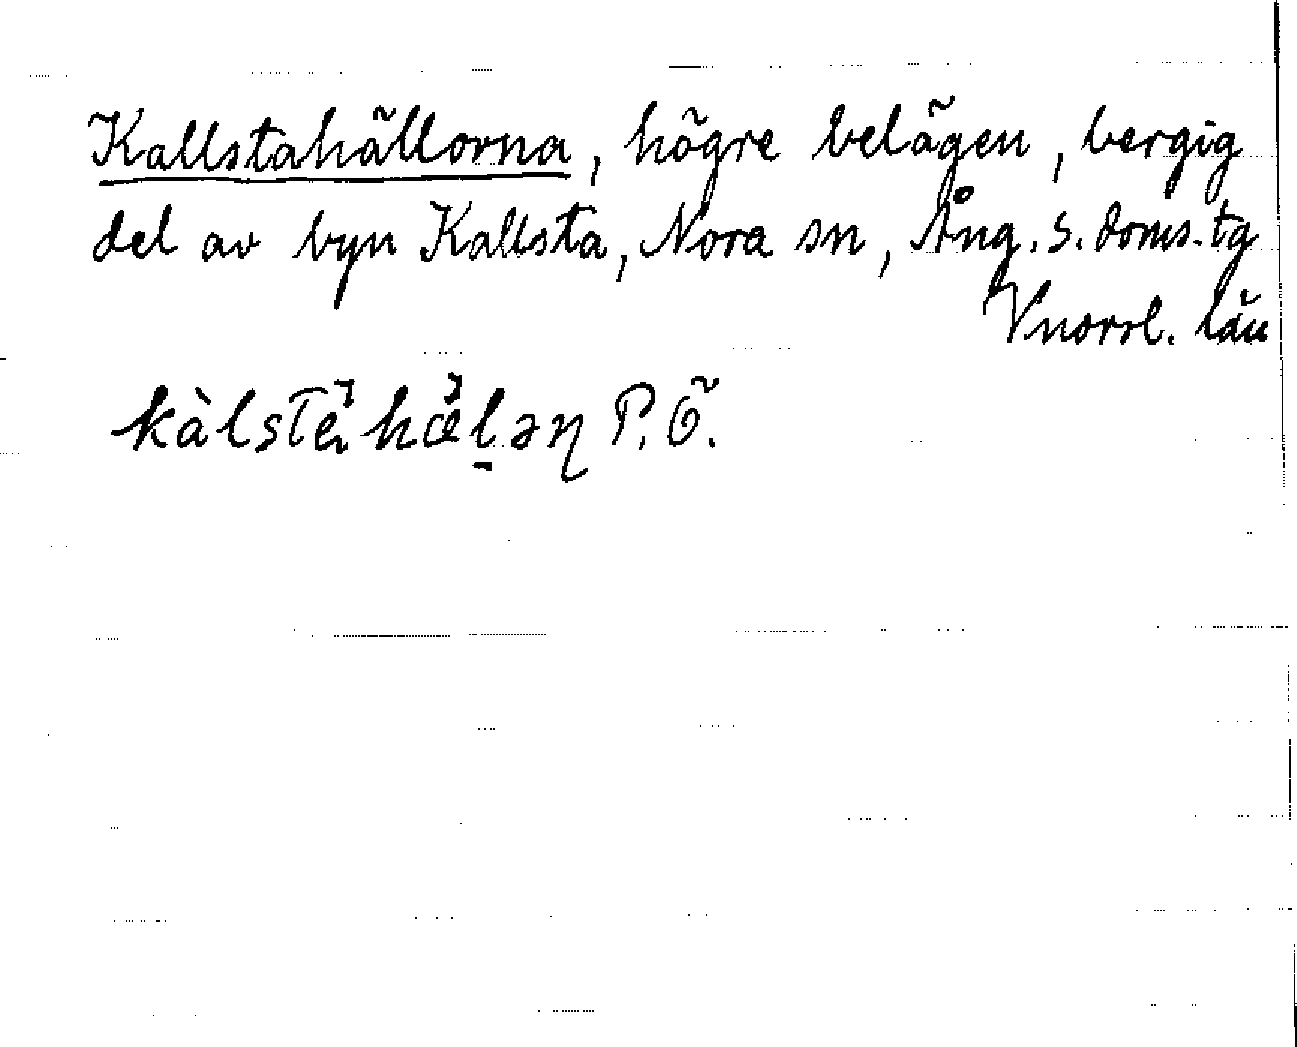 Kallstahällorna, högre belägen, bergig
del av byn Kallsta, Nora sn, Ång. s. doms.tg
Vnorrl. län
P. Ö.